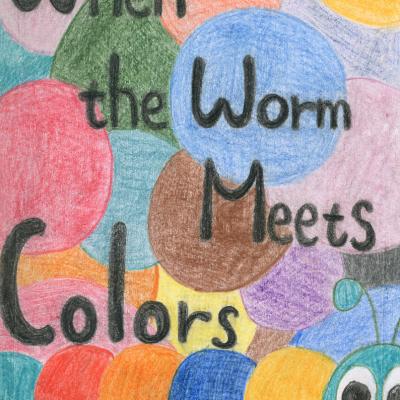 When
the Worm
Meets
Colors